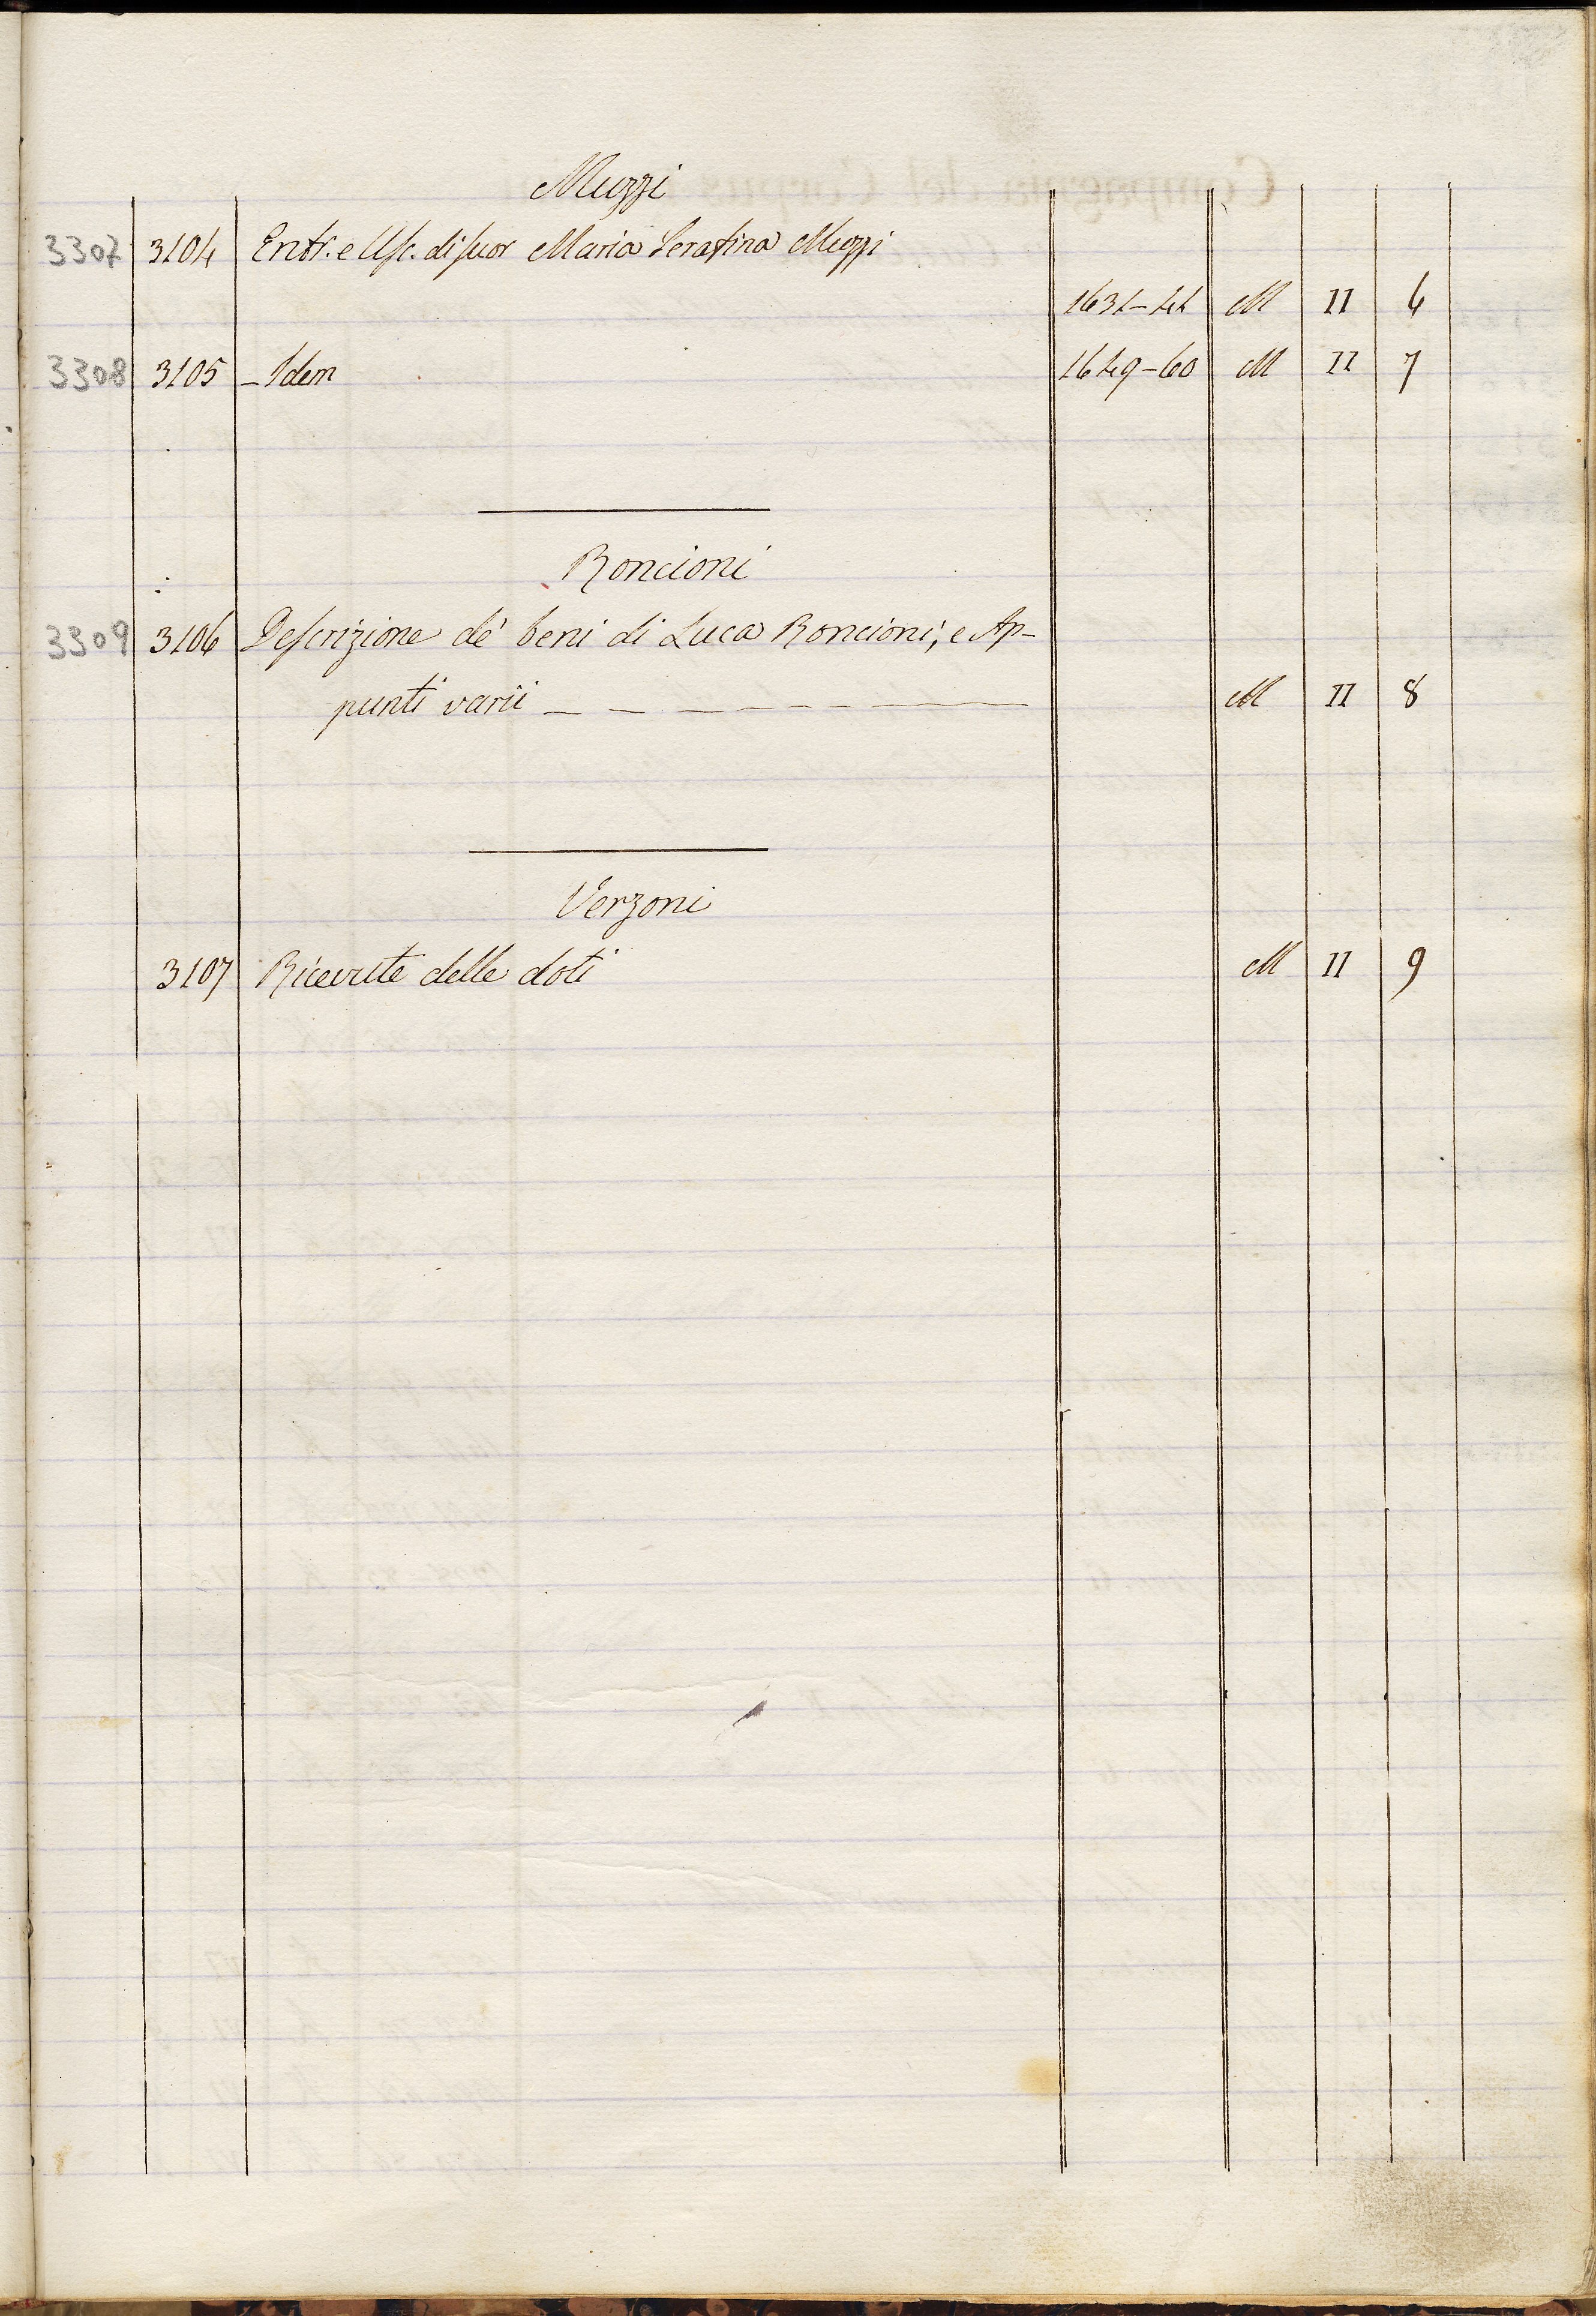 Muzzi
3307 3104 Entr. e Usc. di suor Maria Serafina Muzzi
1631-41 M II 6
3308 3105 - Idem 1649-60 M II 7
Roncioni
3309 3106 Descrizione de' beni di Luca Roncioni, e Ap-
punti varii - - - - - - - - - M II 8
Verzoni
3107 Ricevute delle doti M II 9